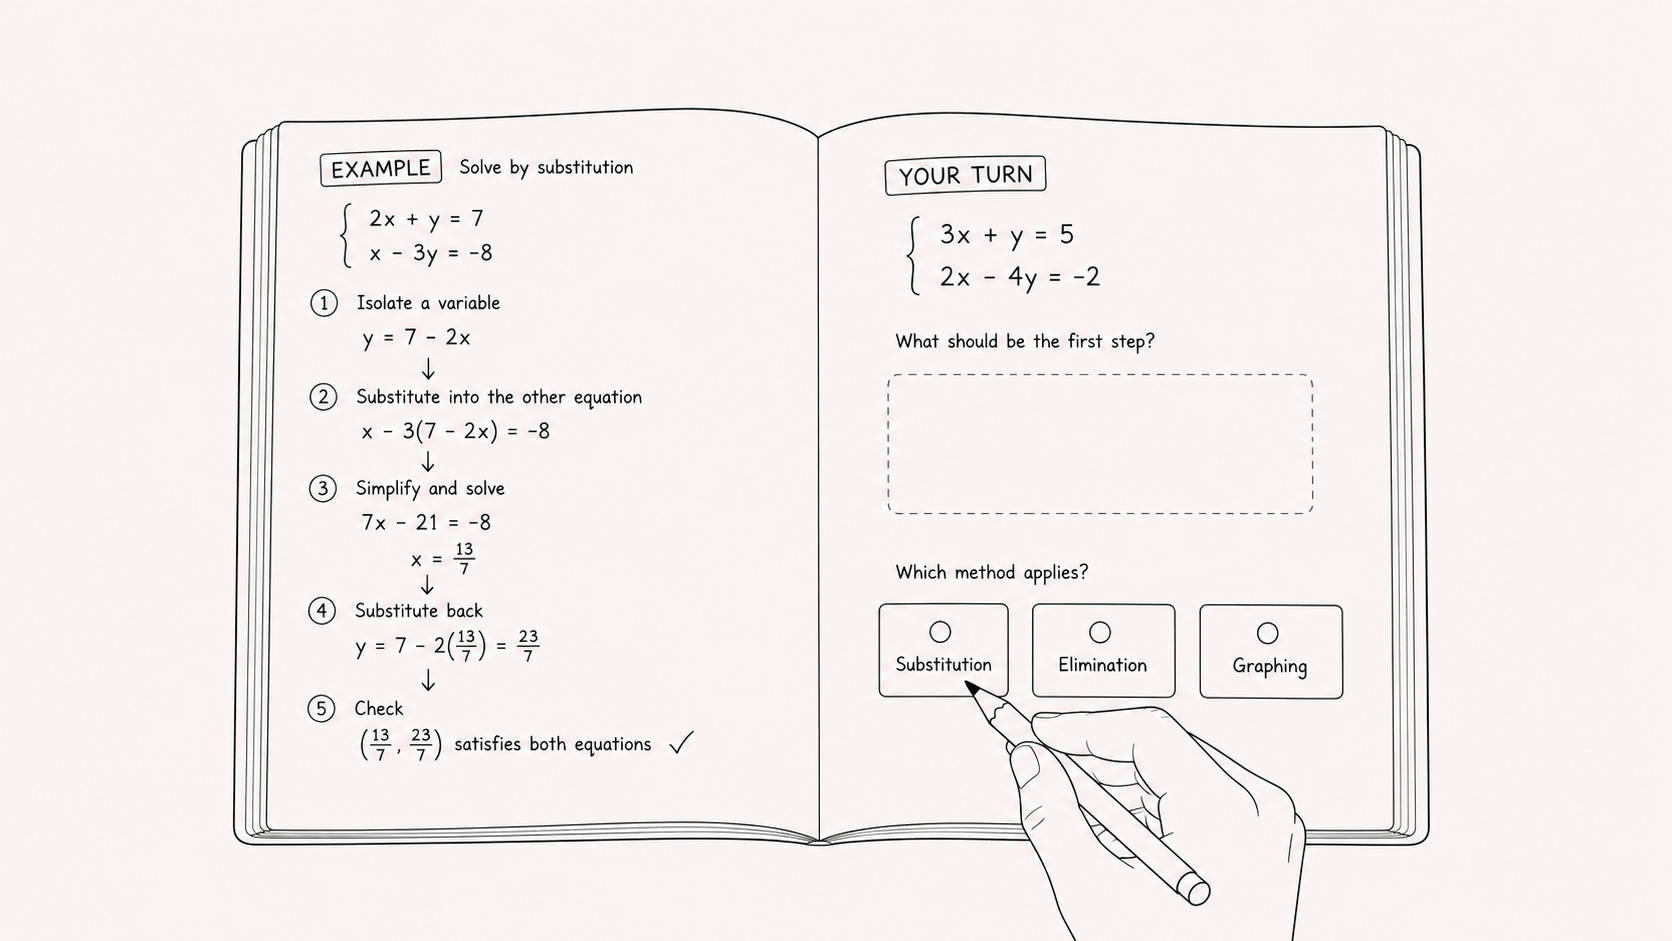 EXAMPLE Solve by substitution
2x + y = 7
x - 3y = -8
1 Isolate a variable
y = 7 - 2x
↓
2 Substitute into the other equation
x - 3(7 - 2x) = -8
↓
3 Simplify and solve
7x - 21 = -8
x = 13/7
↓
4 Substitute back
y = 7 - 2(13/7) = 23/7
↓
5 Check
(13/7, 23/7) satisfies both equations ✓
YOUR TURN
3x + y = 5
2x - 4y = -2
What should be the first step?
Which method applies?
Substitution Elimination Graphing